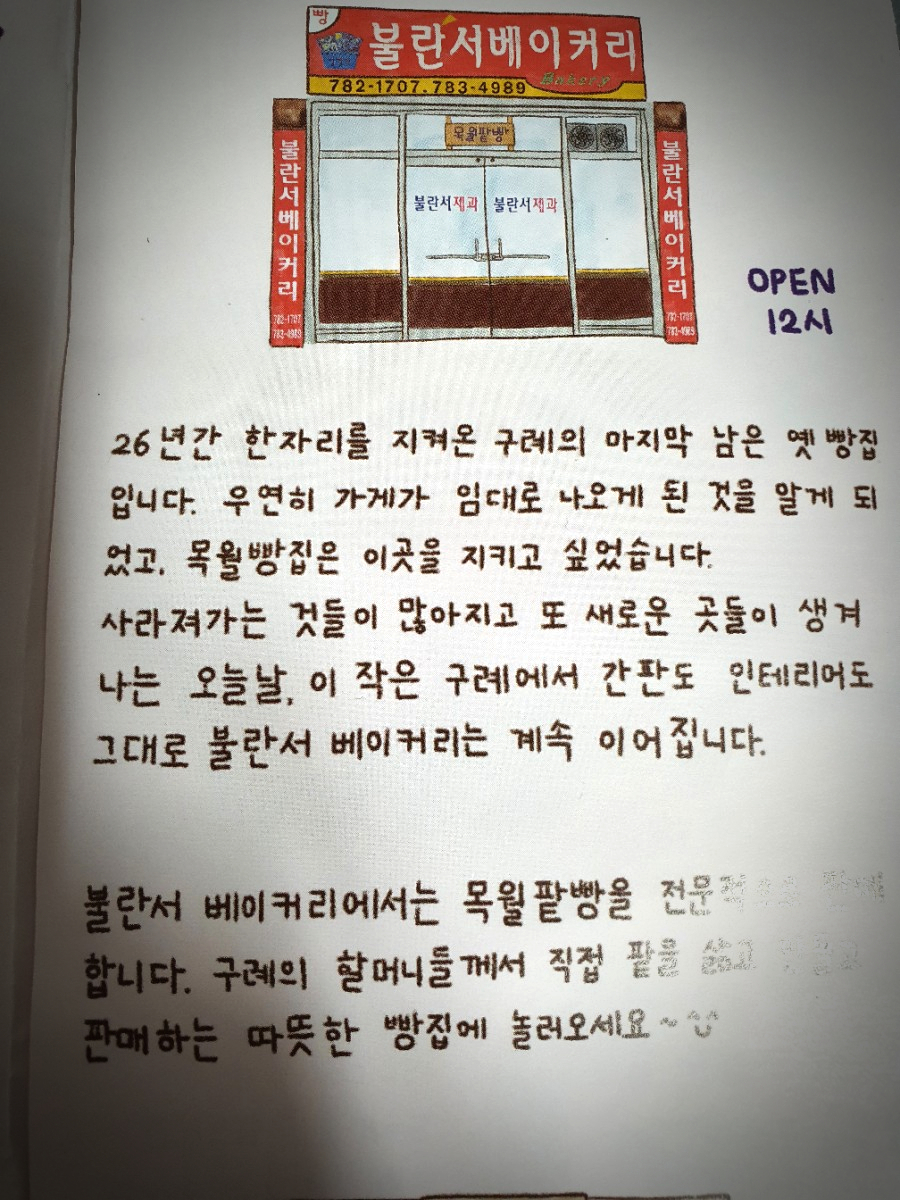 빵
불란서베이커리
Bakery
782-1707. 783-4989
목월팥빵
불란서제과 불란서제과
불란서베이커리
782-1707
783-4989
불란서베이커리
782-1707
783-4989
OPEN
12시
26년간 한자리를 지켜온 구례의 마지막 남은 옛 빵집
입니다. 우연히 가게가 임대로 나오게 된 것을 알게 되
었고, 목월빵집은 이곳을 지키고 싶었습니다.
사라져가는 것들이 많아지고 또 새로운 곳들이 생겨
나는 오늘날, 이 작은 구례에서 간판도 인테리어도
그대로 불란서 베이커리는 계속 이어집니다.
불란서 베이커리에서는 목월팥빵을 전문적으로 판매
합니다. 구례의 할머니들께서 직접 팥을 삶고
판매하는 따뜻한 빵집에 놀러오세요~